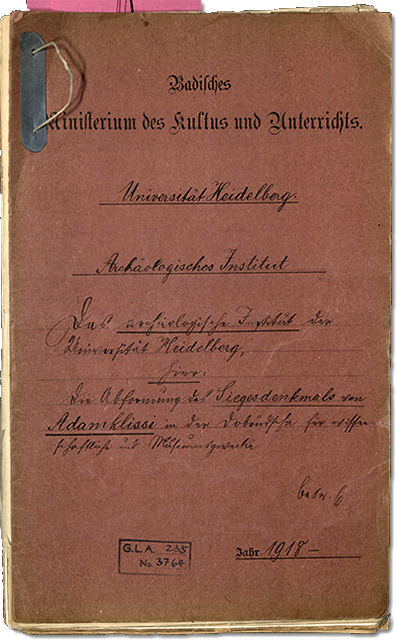 Badisches
Ministerium des Kultus und Unterrichts.
Universität Heidelberg.
Archäologisches Institut
Das archäologische Institut der
Universität Heidelberg,
hier:
Die Abformung des Siegesdenkmals von
Adamklissi in der Dobrudscha für wissen-
schaftliche und Museumszwecke
G.L.A. 235
No 3764
Jahr 1918 –